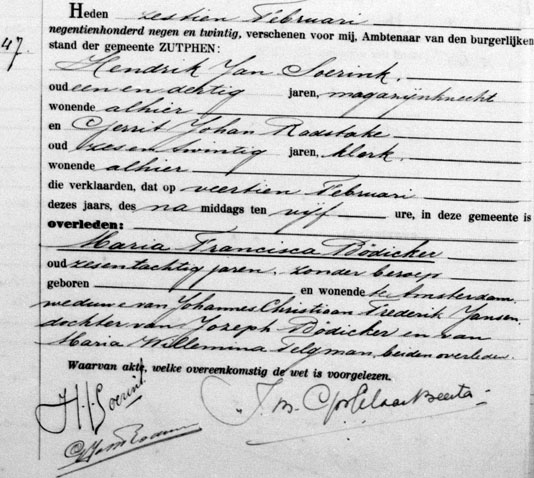 Heden zestien Februari
negentienhonderd negen en twintig, verschenen voor mij, Ambtenaar van den burgerlijken
47.
stand der gemeente ZUTPHEN:
Hendrik Jan Soerink,
oud een en dertig jaren, magazijnknecht
wonende alhier
en Gerrit Johan Radstake
oud zes en twintig jaren, klerk,
wonende alhier
die verklaarden, dat op veertien Februari
dezes jaars, des na middags ten vijf ure, in deze gemeente is
overleden:
Maria Francisca Bödicker
oud zesentachtig jaren, zonder beroep
geboren en wonende te Amsterdam,
weduwe van Johannes Christiaan Frederik Jansen,
dochter van Joseph Bödicker en van
Maria Willemina Telgman, beiden overleden.
Waarvan akte, welke overeenkomstig de wet is voorgelezen.
H.J. Soerink